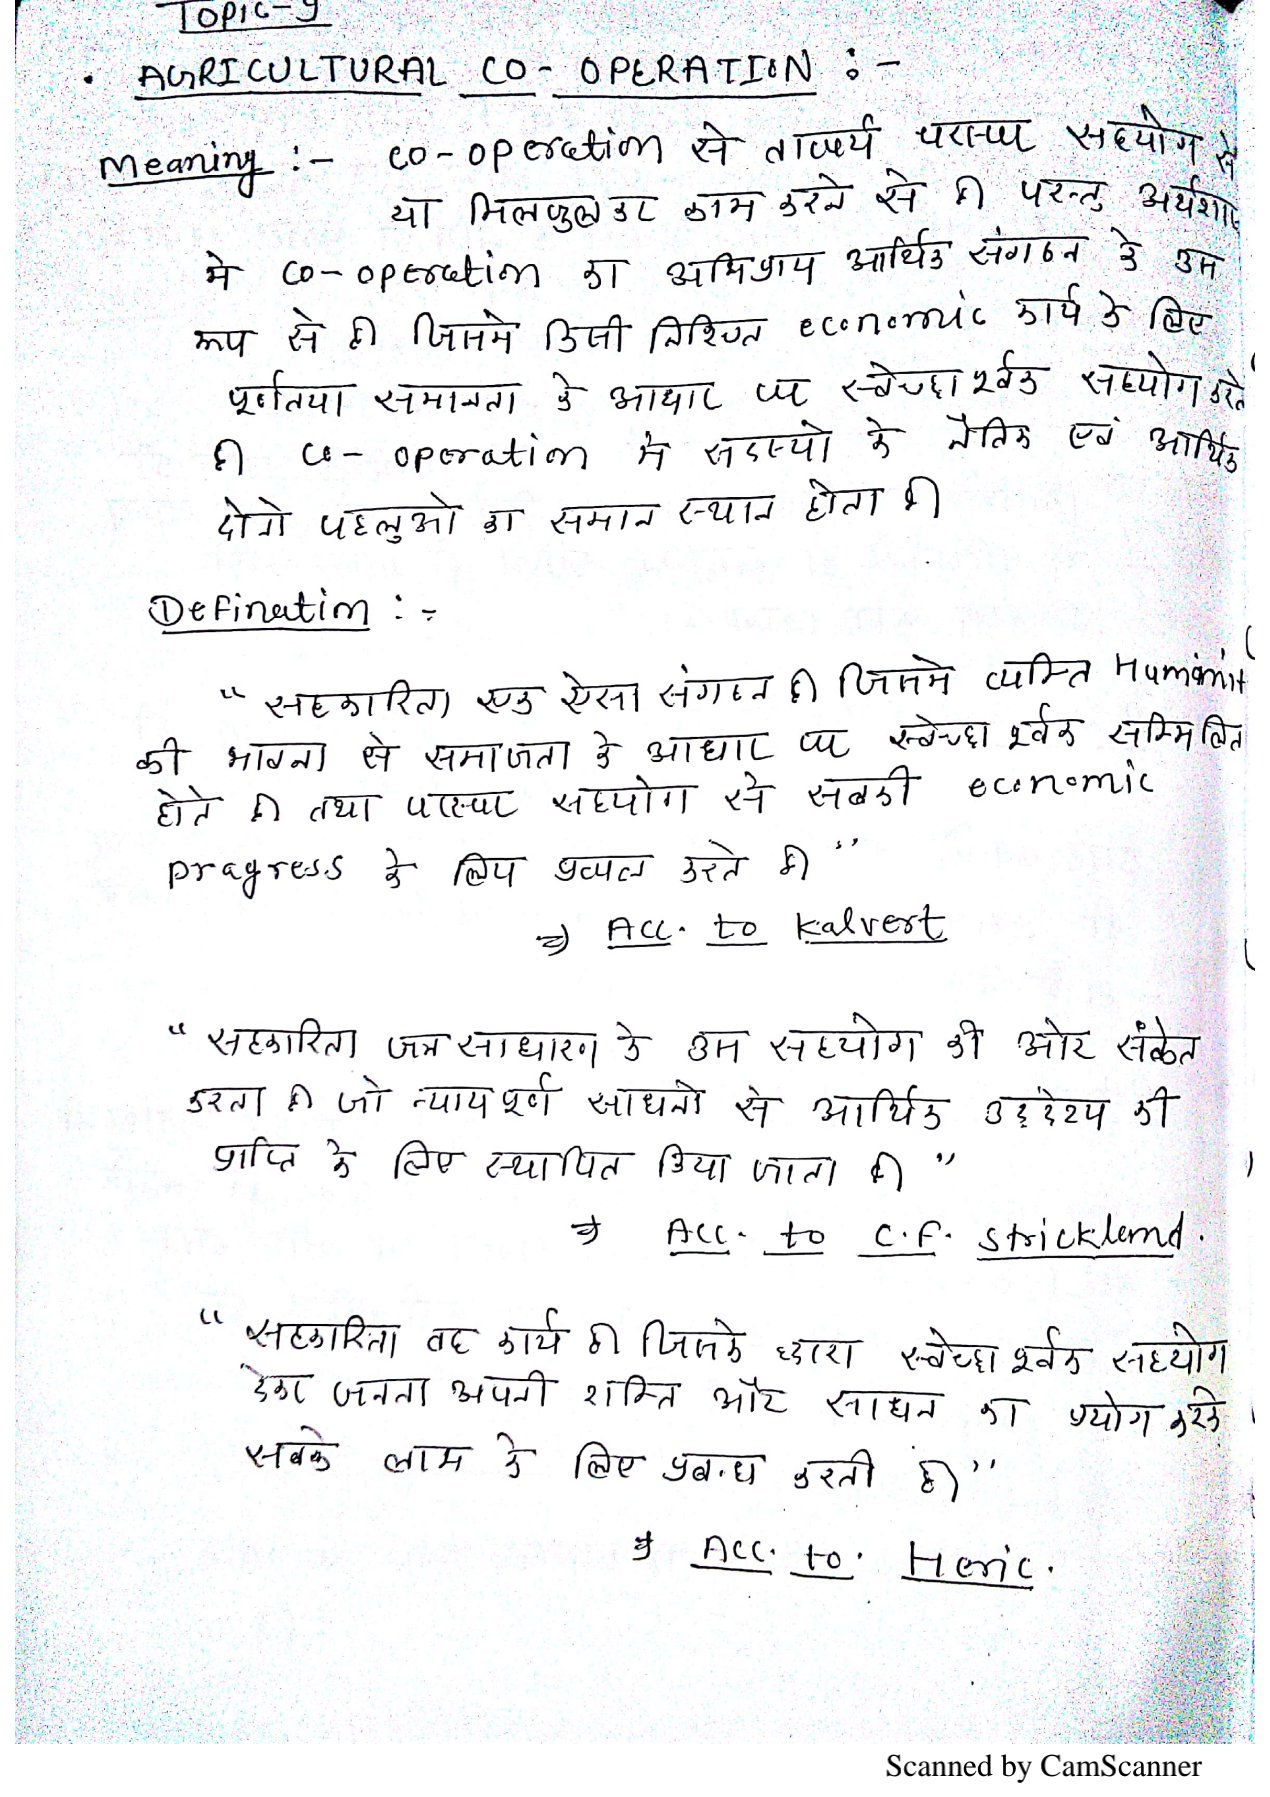 TOPIC-9
• AGRICULTURAL CO-OPERATION :-
Meaning :- CO-operation से तात्पर्य परस्पर सहयोग से
या मिलजुलकर काम करने से है परन्तु अर्थशा
मे CO-operation का अभिप्राय आर्थिक संगठन के उस
रूप से है जिसमे किसी निश्चित economic कार्य के लिए
पूर्णतया समानता के आधार पर स्वेच्छा पूर्वक सहयोग करते
है CO-operation मे सदस्यो के नैतिक एवं आर्थिक
दोनो पहलुओ का समान स्थान होता है
Defination :-
" सहकारिता एक ऐसा संगठन है जिसमे व्यक्ति Humanit
की भावना से समानता के आधार पर स्वेच्छा पूर्वक सम्मिलित
होते है तथा परस्पर सहयोग से सबकी economic
progress के लिए प्रयत्न करते है "
⇒ Acc. to Kalvert
" सहकारिता जन साधारण के उस सहयोग की ओर संकेत
करता है जो न्यायपूर्ण साधनो से आर्थिक उद्देश्य की
प्राप्ति के लिए स्थापित किया जाता है "
⇒ Acc. to C.F. Stricklemd.
" सहकारिता वह कार्य है जिसके द्वारा स्वेच्छा पूर्वक सहयोग
देकर जनता अपनी शक्ति और साधन का प्रयोग करके
सबके लाभ के लिए प्रबन्ध करती है "
⇒ Acc. to. Heric.
Scanned by CamScanner